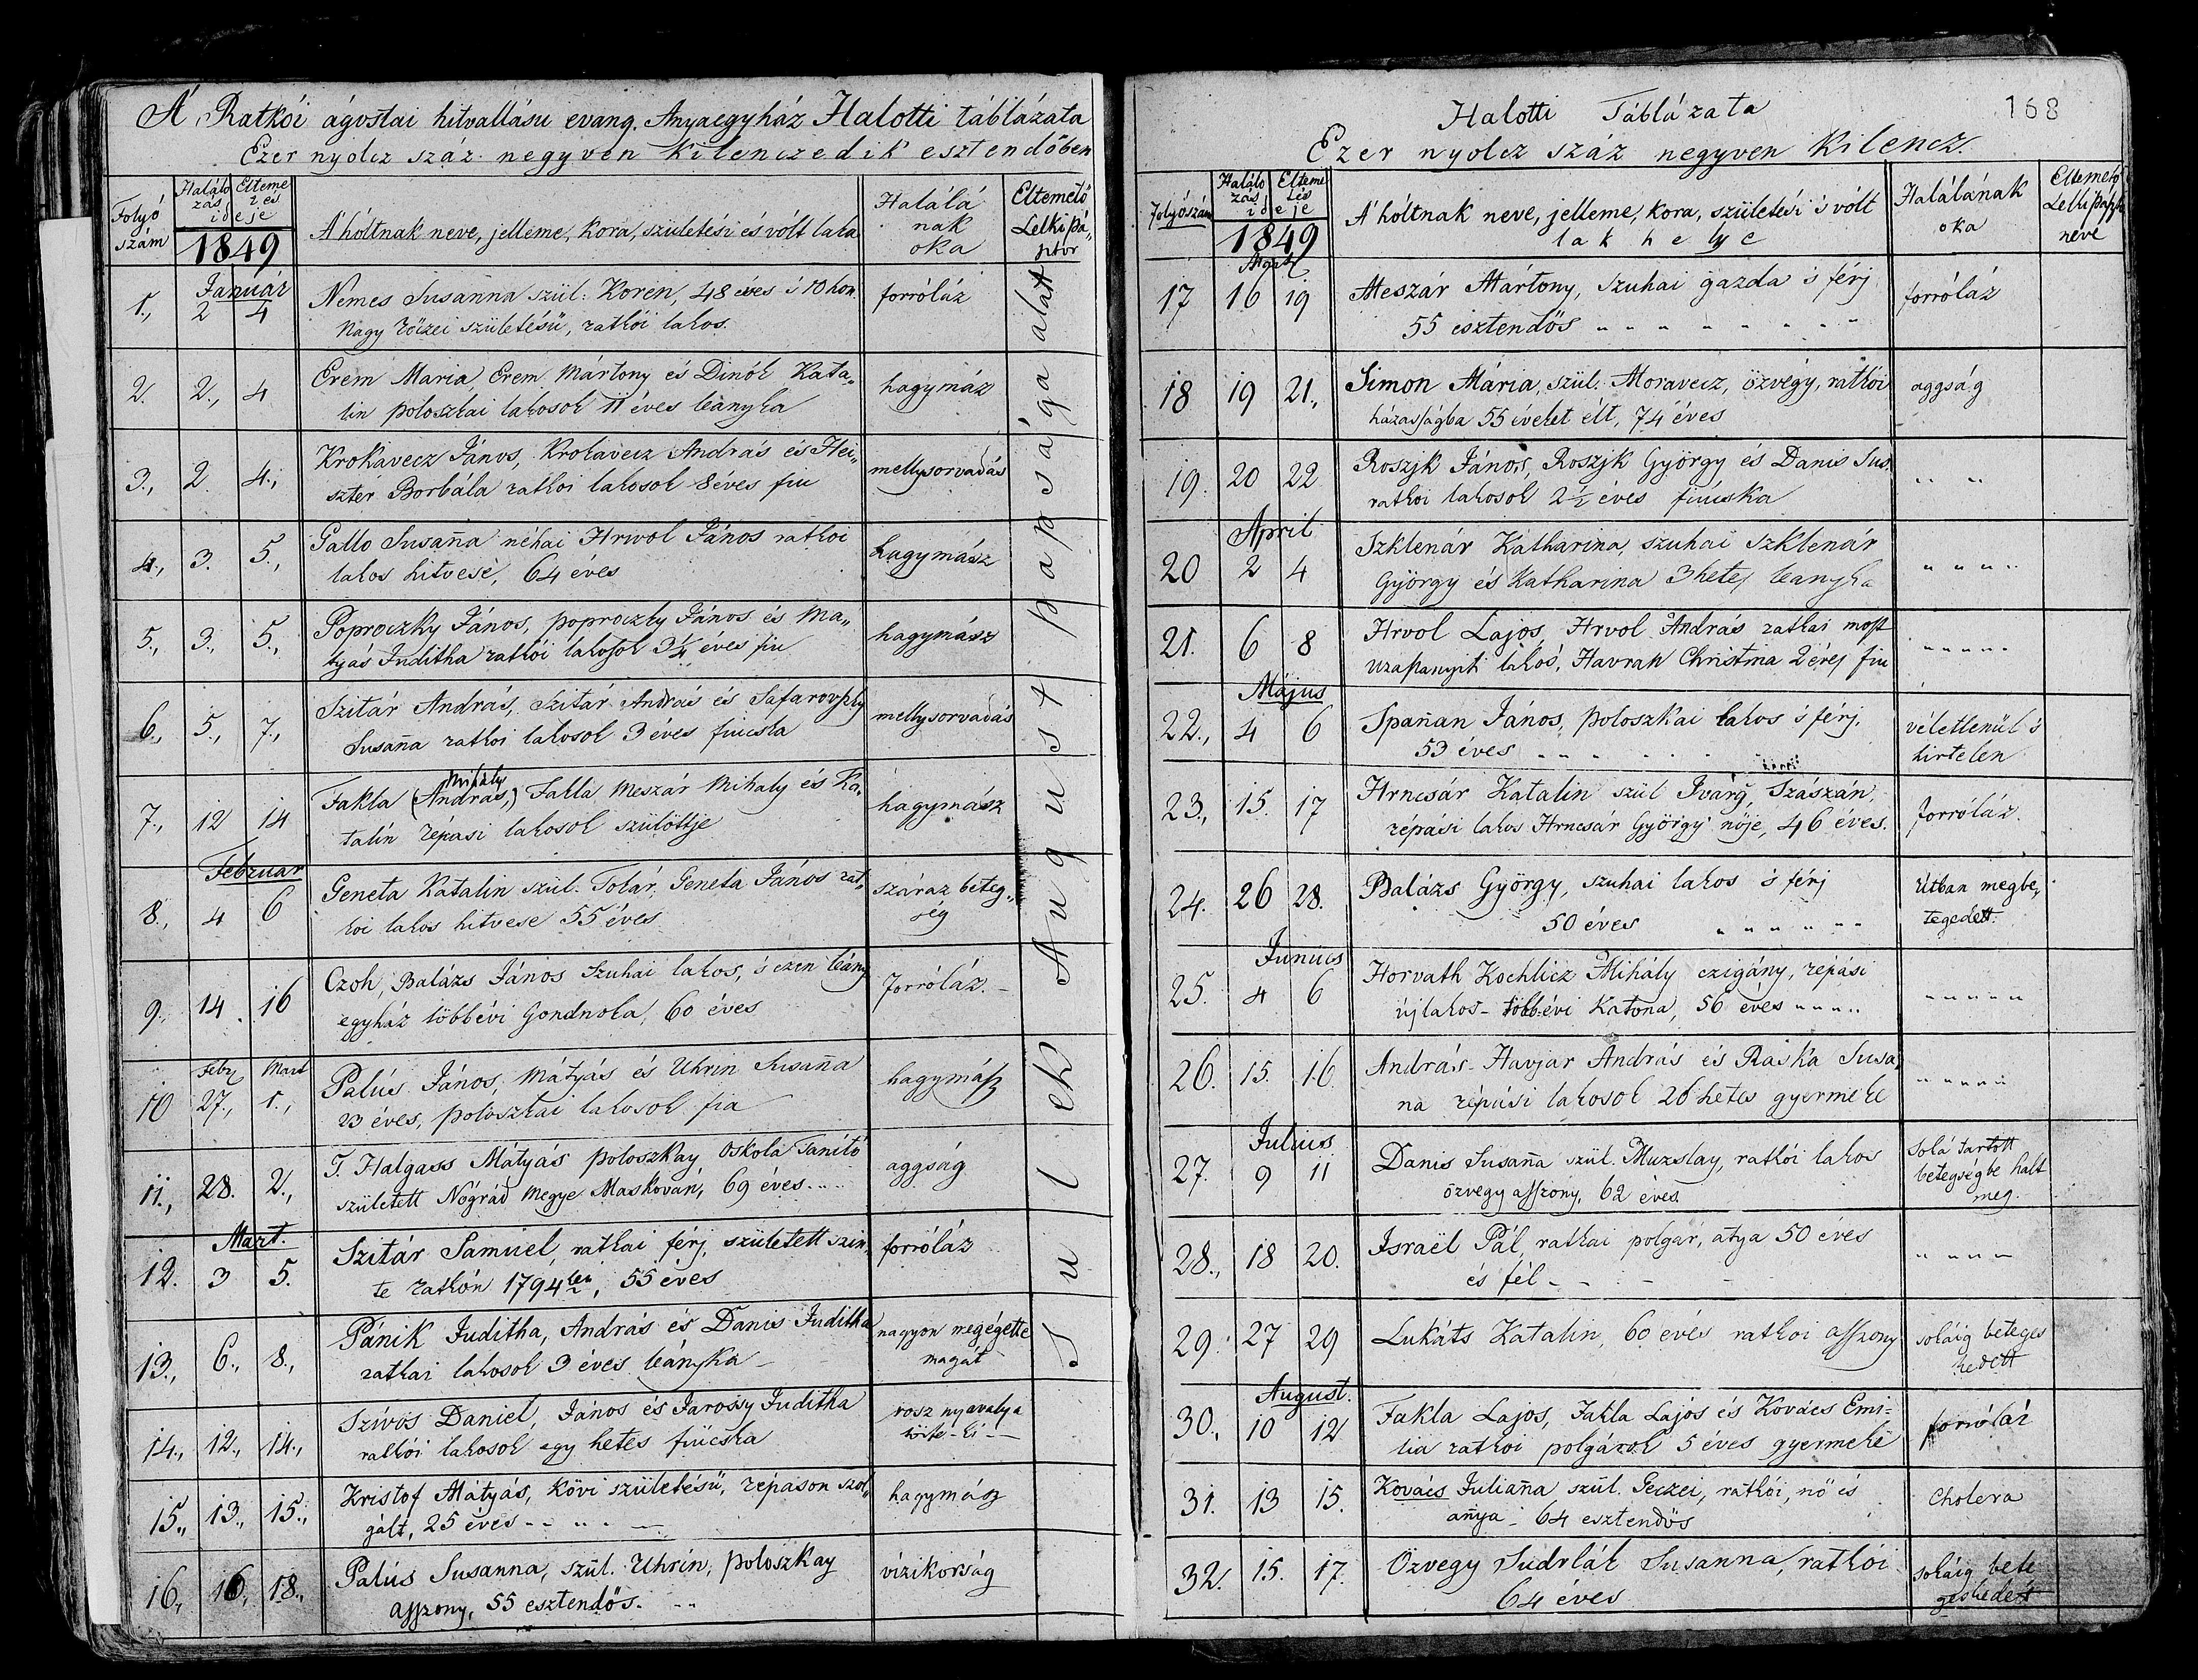 A' Ratkói ágostai hitvallásu evang. Anyaegyház Halotti táblázata
Ezer nyolcz száz negyven kilenczedik esztendőben
Folyó szám
Halálozás Eltemetés ideje
1849
A' hóltnak neve, jelleme, kora, születési és vólt laka
Halálának oka
Eltemető Lelkipásztor
Január
1., 2 4 Nemes Susanna szül: Koren, 48 éves 's 10 hon.
Nagy rőczei születésű, ratkói lakos.
forróláz
2. 2., 4 Erem Maria, Erem Mártony és Dinók Kata„
lin poloszkai lakosok 11 éves leányka
hagymáz
3., 2. 4., Krokavecz János, Krokavecz András és Hei„
szter Borbála ratkoi lakosok 8 éves fiu
mellysorvadás
4., 3. 5., Gallo Susana néhai Hrivol János ratkoi
lakos hitvese, 64 éves
hagymász
5., 3., 5., Poproczky János, poproczky János és Ma„
tyás Juditha ratkói lakosok 3¼ éves fiu
hagymász
6., 5., 7., Szitár András, Szitár András és Safarovszky
Susana ratkoi lakosok 3 éves fiucska
mellysorvadás
Mihály
7., 12 14 Fakla (András,) Falla Meszár Mihaly és Ka„
talin répasi lakosok szülöttje
hagymász
Februar
8., 4 6 Geneta Katalin szül. Tolár, Geneta János rat„
koi lakos hitvese 55 éves
száraz beteg„
ség
9., 14. 16 Czoh, Balázs János Szuhai lakos, 's ezen leány
egyház többévi Gondnoka, 60 éves
Forróláz. –
Febr Mart
10 27., 1., Palús János, Mátyás és Uhrin Susana
23 éves, poloszkai lakosok fia
hagymász
11., 28. 2., T. Halgass Mátyás poloszkay oskola Tanító
született Nógrád Megye Maskován, 69 éves
aggság
Mart.
12. 3 5. Szitár Samuel, ratkai férj, született szin„
te ratkón 1794ben, 55 éves
forróláz
13., 6., 8., Pánik Juditha, András és Danis Juditha
ratkai lakosok 3 éves leányka –
nagyon megégette
magát
14., 12., 14., Szívos Daniel, János és Jarossy Juditha
ratkói lakosok egy hetes fiúcska
rosz nyavalya
törte-ki –
15., 13., 15., Kristof Mátyás, Kövi születésű, répason szol„
gált, 25 éves
hagymász
16., 16., 18., Palús Susanna, szül. Uhrin, poloszkay
asszony, 55 esztendős.
vízikorság
Sulek August papsága alatt
168
Halotti Táblázata
Ezer nyolcz száz negyven kilencz.
Folyószám
Halálozás Eltemetés ideje
1849
A' hóltnak neve, jelleme, kora, születési 's vólt
lakhelye
Halálának
oka
Eltemető
Lelkipásztor
neve
17 16 19 Meszár Mártony, Szuhai gazda 's férj
55 esztendős
forróláz
18 19 21., Simon Mária, szül. Moravecz, özvegy, ratkói
házasságba 55 éveket élt, 74 éves
aggság
19. 20 22 Roszjk János, Roszjk György és Danis Sus.
ratkoi lakosok 2½ éves fiúcska
„ „
April
20 2 4 Szklenár Katharina, szuhai Szklenár
György és Katharina 3 hetes leanyka
„ „ „ „
21. 6 8 Hrvol Lajos, Hrvol András ratkai most
uzapanyiti lakos, Havran Christina 2 éves fiu
„ „ „ „
Május
22., 4 6 Spanan János, poloszkai lakos 's férj,
53 éves
véletlenül 's
hirtelen
23., 15. 17 Hrncsár Katalin szül Ivány, Szászán,
répási lakos Hrncsár György nője, 46 éves.
forróláz.
24. 26 28. Balázs György, szuhai lakos 's férj
50 éves
Útban megbe„
tegedett.
Június
25. 4 6 Horvath Kochlicz Mihály czigány, répási
újlakos – többévi Katona, 56 éves
„ „ „ „
26. 15. 16. András – Havjar András és Raska Susa„
na répási lakosok 26 hetes gyermeke
„ „ „ „
Julius
27. 9 11 Danis Susana szül. Muzslay, ratkói lakos
özvegy asszony, 62 éves
Soká tartott
betegségbe halt
meg.
28., 18 20. Israël Pál, ratkai polgár, atya 50 éves
és fél –
„ „ „ „
29. 27 29 Lukáts Katalin, 60 éves ratkoi asszony
sokáig beteges
kedett
August.
30., 10 12 Fakla Lajos, Fakla Lajos és Kovács Emi=
lia ratkoi polgárok 5 éves gyermeke
forróláz
31. 13 15. Kovács Juliana szül. Geczei, ratkói, nő és
anya – 64 esztendős
Cholera
32. 15. 17. Özvegy Sudrlák Susanna, ratkói
64 éves
sokáig bete
geskedett